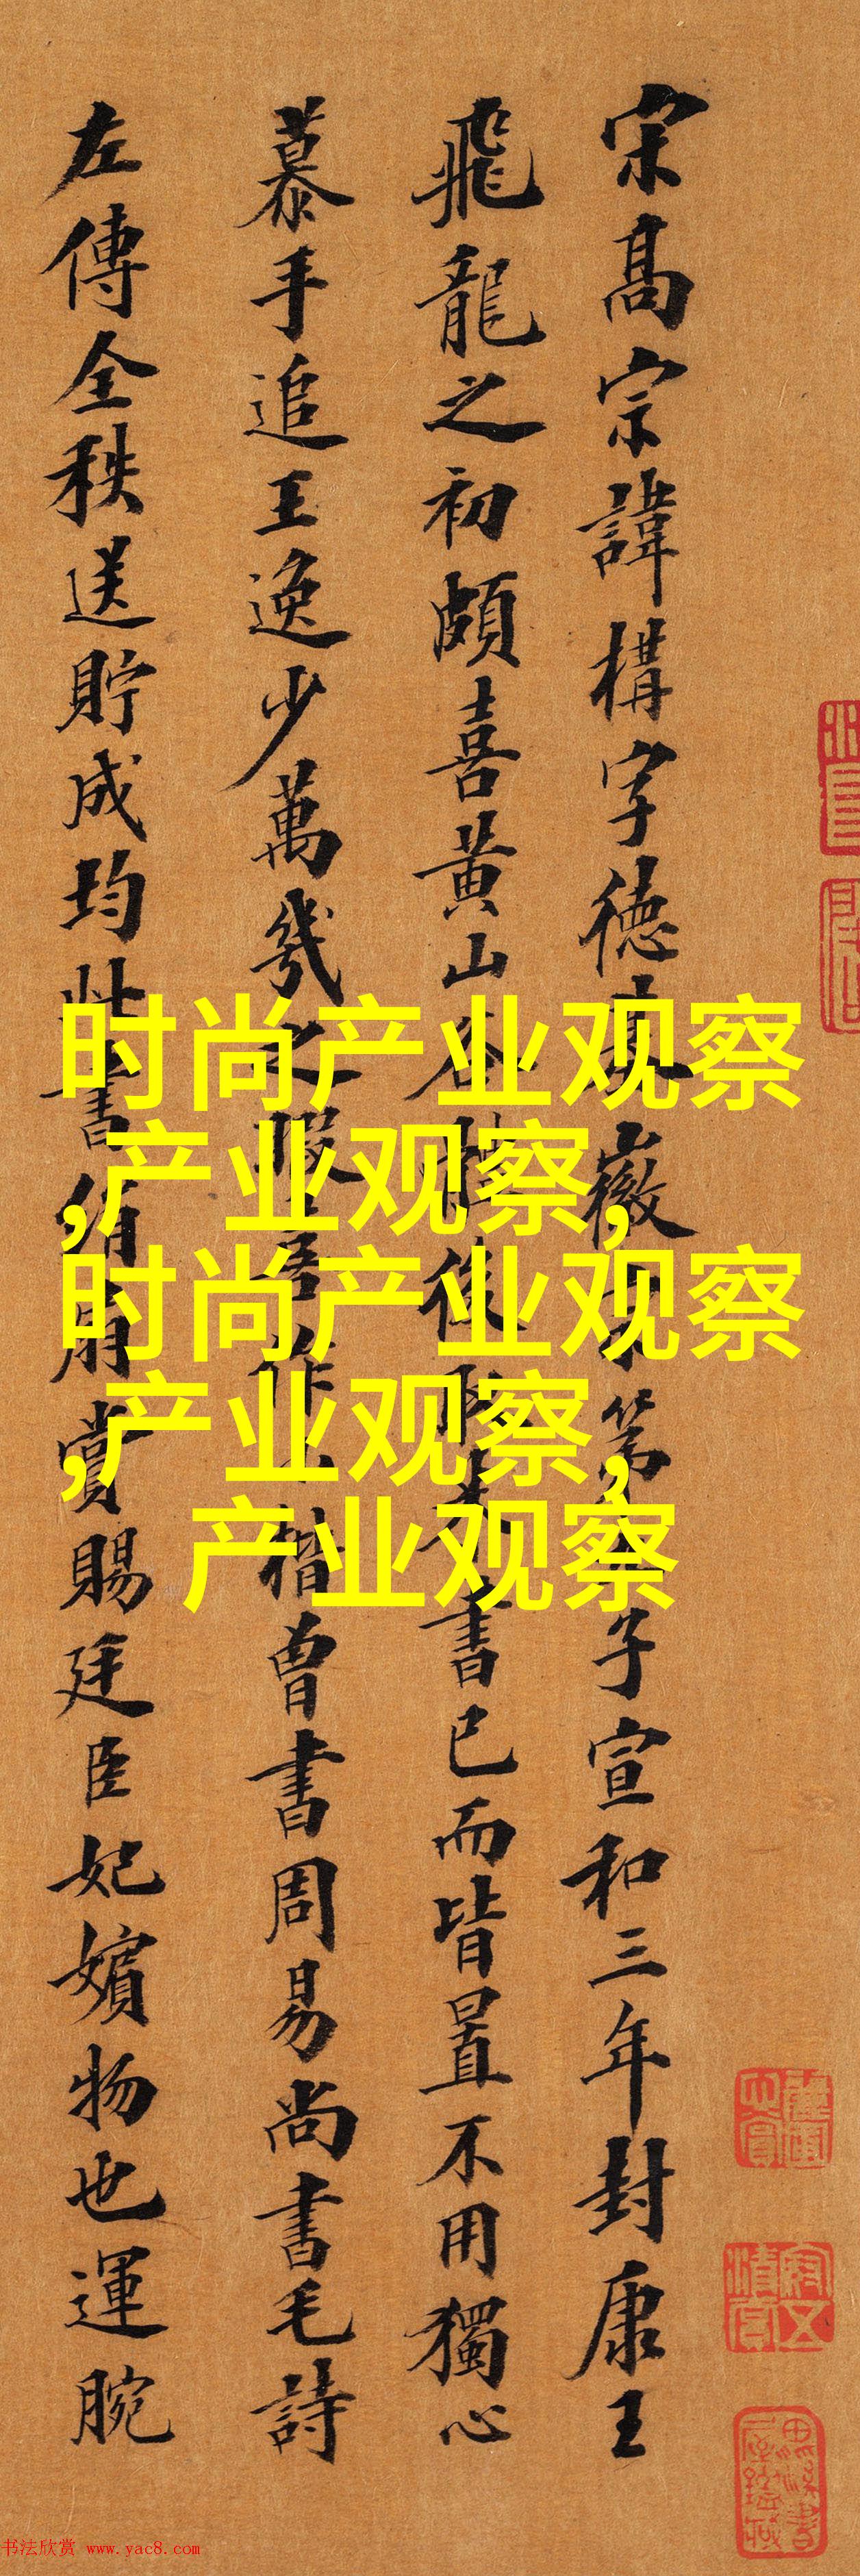 宋高宗諱構字德基徽宗第九子宣和三年封康王
飛龍之初頗喜黃山谷體後取米書已而皆置不用獨心
慕手追王逸少萬幾之暇
作小楷曾書周易尚書毛詩
左傳全秩送貯成均
書絹扇賞賜廷臣妃嬪物也運腕
时尚产业观察
,产业观察,
时尚产业观察
,产业观察,
产业观察
书法欣赏 www.yac8.com